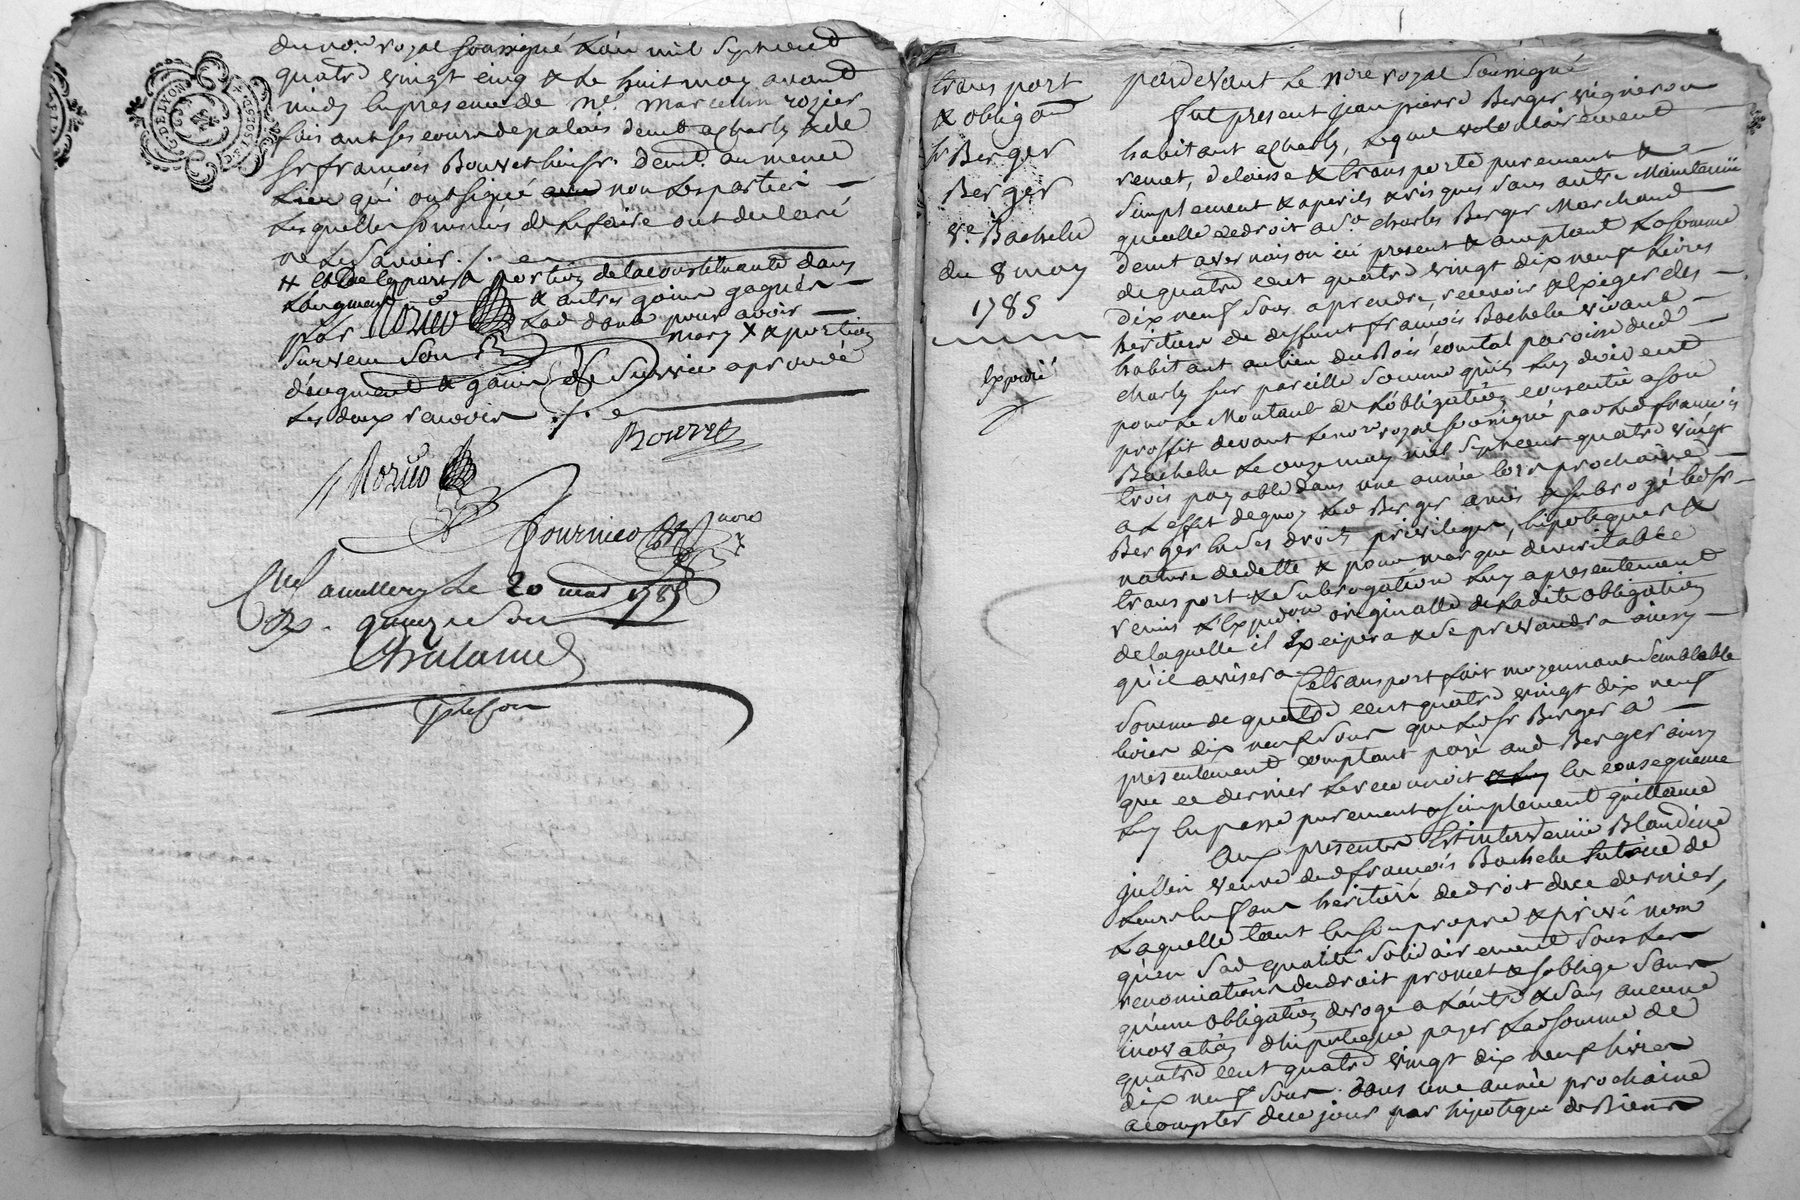 du nore royal soussigné l'an mil sept cent
quatre vingt cinq & le huit may avant
midy en presence de me. marcelin rozier
fois au ses cours de palais demt. a charly & de
sr françois Bouvet huissr. demt. au meme
lieu qui ont signé non les parties
lesquelles sommées de le faire ont declaré
ne le savoir ./.
& de la part & portion de la constituante dans
l'augment & autres gains gagnés
par Mozieo lad dame pour avoir
survecu son mary & portion
d'augment & gains de survie aprouvé
les deux renvois ./.
Bouvet
Mozieo
nore
a millery le 20 may 1785
quinze sous
G DE LYON
transport
& obligaon
sr Berger
Berger
ve. Bachelu
du 8 may
1785
Expedié
pardevant le nore royal soussigné
fut present jean pierre Berger vigneron
habitant a charly, lequel volontairement
remet, delaisse & transporte purement &
simplement & a perils & risques sans autre maintenüe
quelle de droit a sr. charles Berger marchand
demt a vernaison ici present & acceptant la somme
de quatre cent quatre vingt dix neuf livres
dix neuf sous a prendre, recevoir & exiger des
heritiers de deffunt françois Bachelu vivant
habitant au lieu du Bois comtal paroisse dud
charly sur pareille somme qu'ils luy doivent
pour le montant de l'obligation consentie a son
proffit devant le nore royal soussigné par led françois
Bachelu le onze may mil sept cent quatre vingt
trois payable dans une année lors prochaine
a l'effet de quoy led Berger a mis & subrogé led sr
Berger en ses droits, privileges, hipoteques &
nature de dette & pour marque de veritable
transport & subrogation luy a presentement
remis l'expedon originalle de ladite obligation
de laquelle il Excipera & se prevaudra ainsy
qu'il avisera
Ce transport fait moyennant semblable
somme de quatre cent quatre vingt dix neuf
livres dix neuf sous que led sr Berger a
presentement comptant payé aud Berger ainsy
que ce dernier le reconnoit en consequence
luy en passe purement & simplement quittance
Aux presentes Est intervenüe Blandine
jullien veuve dud françois Bachelu tutrice de
leurs enfans heritiers de droit de ce dernier,
laquelle tant en son propre & privé nom
qu'en sad qualité solidairement sous les
renonciations de droit promet & s'oblige sans
qu'une obligation deroge a l'autre & sans aucune
inovation d'hipoteque payer lad somme de
quatre cent quatre vingt dix neuf livres
dix neuf sous dans une année prochaine
a compter de ce jour par hipoteque de Biens